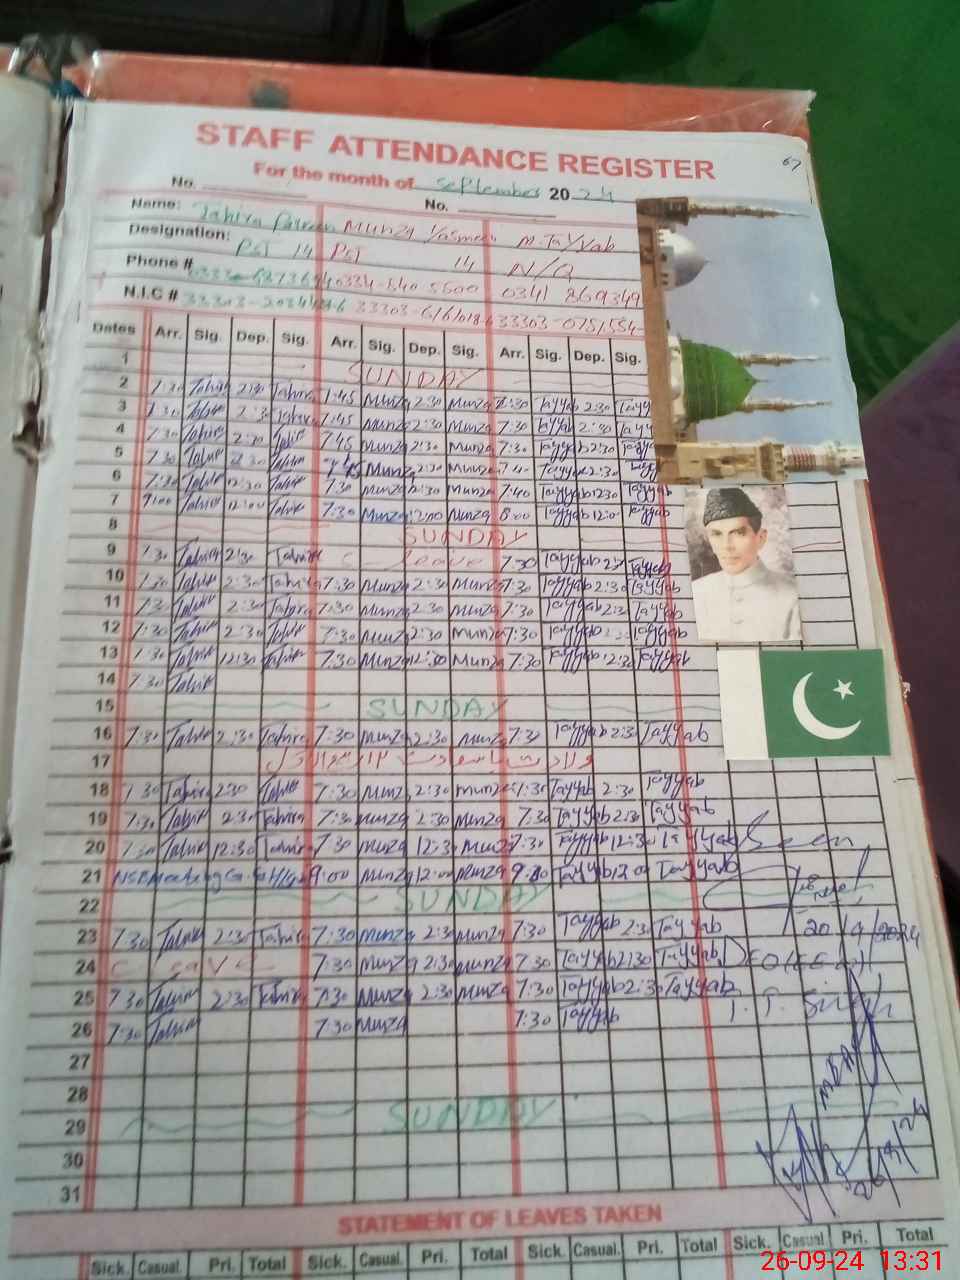 67
STAFF ATTENDANCE REGISTER
For the month of September 2024
No. No.
Name: Tahira Parveen Munza Yasmeen M. Tayyab
Designation: PST 14 PST 14 N/Q
Phone # 0334-540 5500 0341 869349
N.I.C # 33303- 33303- 33303-0751554-
Dates Arr. Sig. Dep. Sig. Arr. Sig. Dep. Sig. Arr. Sig. Dep. Sig.
1 SUNDAY
2 7:30 Tahira 2:30 Tahira 7:45 Munza 2:30 Munza 7:30 Tayyab 2:30 Tayy
3 7:30 Tahira 2:30 Tahira 7:45 Munza 2:30 Munza 7:30 Tayyab 2:30 Tayy
4 7:30 Tahira 2:30 Tahira 7:45 Munza 2:30 Munza 7:30 Tayyab 2:30 Tayyab
5 7:30 Tahira 2:30 Tahira 7:45 Munza 2:30 Munza 7:40 Tayyab 2:30
6 7:30 Tahira 12:30 Tahira 7:30 Munza 12:30 Munza 7:40 Tayyab 12:30 Tayyab
7 9:00 Tahira 12:00 Tahira 7:30 Munza 12:00 Munza 8:00 Tayyab 12:00 Tayyab
8 SUNDAY
9 7:30 Tahira 2:30 Tahira C leave 7:30 Tayyab 2:30 Tayyab
10 7:30 Tahira 2:30 Tahira 7:30 Munza 2:30 Munza 7:30 Tayyab 2:30 Tayyab
11 7:30 Tahira 2:30 Tahira 7:30 Munza 2:30 Munza 7:30 Tayyab 2:30 Tayyab
12 7:30 Tahira 2:30 Tahira 7:30 Munza 2:30 Munza 7:30 Tayyab 2:30 Tayyab
13 7:30 Tahira 12:30 Tahira 7:30 Munza 12:30 Munza 7:30 Tayyab 12:30 Tayyab
14 7:30 Tahira
15 SUNDAY
16 7:30 Tahira 2:30 Tahira 7:30 Munza 2:30 Munza 7:30 Tayyab 2:30 Tayyab
17 ولادت باسعادت ۱۲ ربیع الاول
18 7:30 Tahira 2:30 Tahira 7:30 Munza 2:30 Munza 7:30 Tayyab 2:30 Tayyab
19 7:30 Tahira 2:30 Tahira 7:30 Munza 2:30 Munza 7:30 Tayyab 2:30 Tayyab
20 7:30 Tahira 12:30 Tahira 7:30 Munza 12:30 Munza 7:30 Tayyab 12:30 Tayyab Seen
21 NSB Meeting 9:00 Munza 12:00 Munza 9:00 Tayyab 12:00 Tayyab
22 SUNDAY
23 7:30 Tahira 2:30 Tahira 7:30 Munza 2:30 Munza 7:30 Tayyab 2:30 Tayyab 20/9/2024
24 C leave 7:30 Munza 2:30 Munza 7:30 Tayyab 2:30 Tayyab DEO (EE-M)
25 7:30 Tahira 2:30 Tahira 7:30 Munza 2:30 Munza 7:30 Tayyab 2:30 Tayyab T. T. Singh
26 7:30 Tahira 7:30 Munza 7:30 Tayyab
27
28
29 SUNDAY
30
31
MEA
26/9/24
STATEMENT OF LEAVES TAKEN
Sick. Casual. Pri. Total Sick. Casual. Pri. Total Sick. Casual. Pri. Total Sick. Casual. Pri. Total
26-09-24 13:31